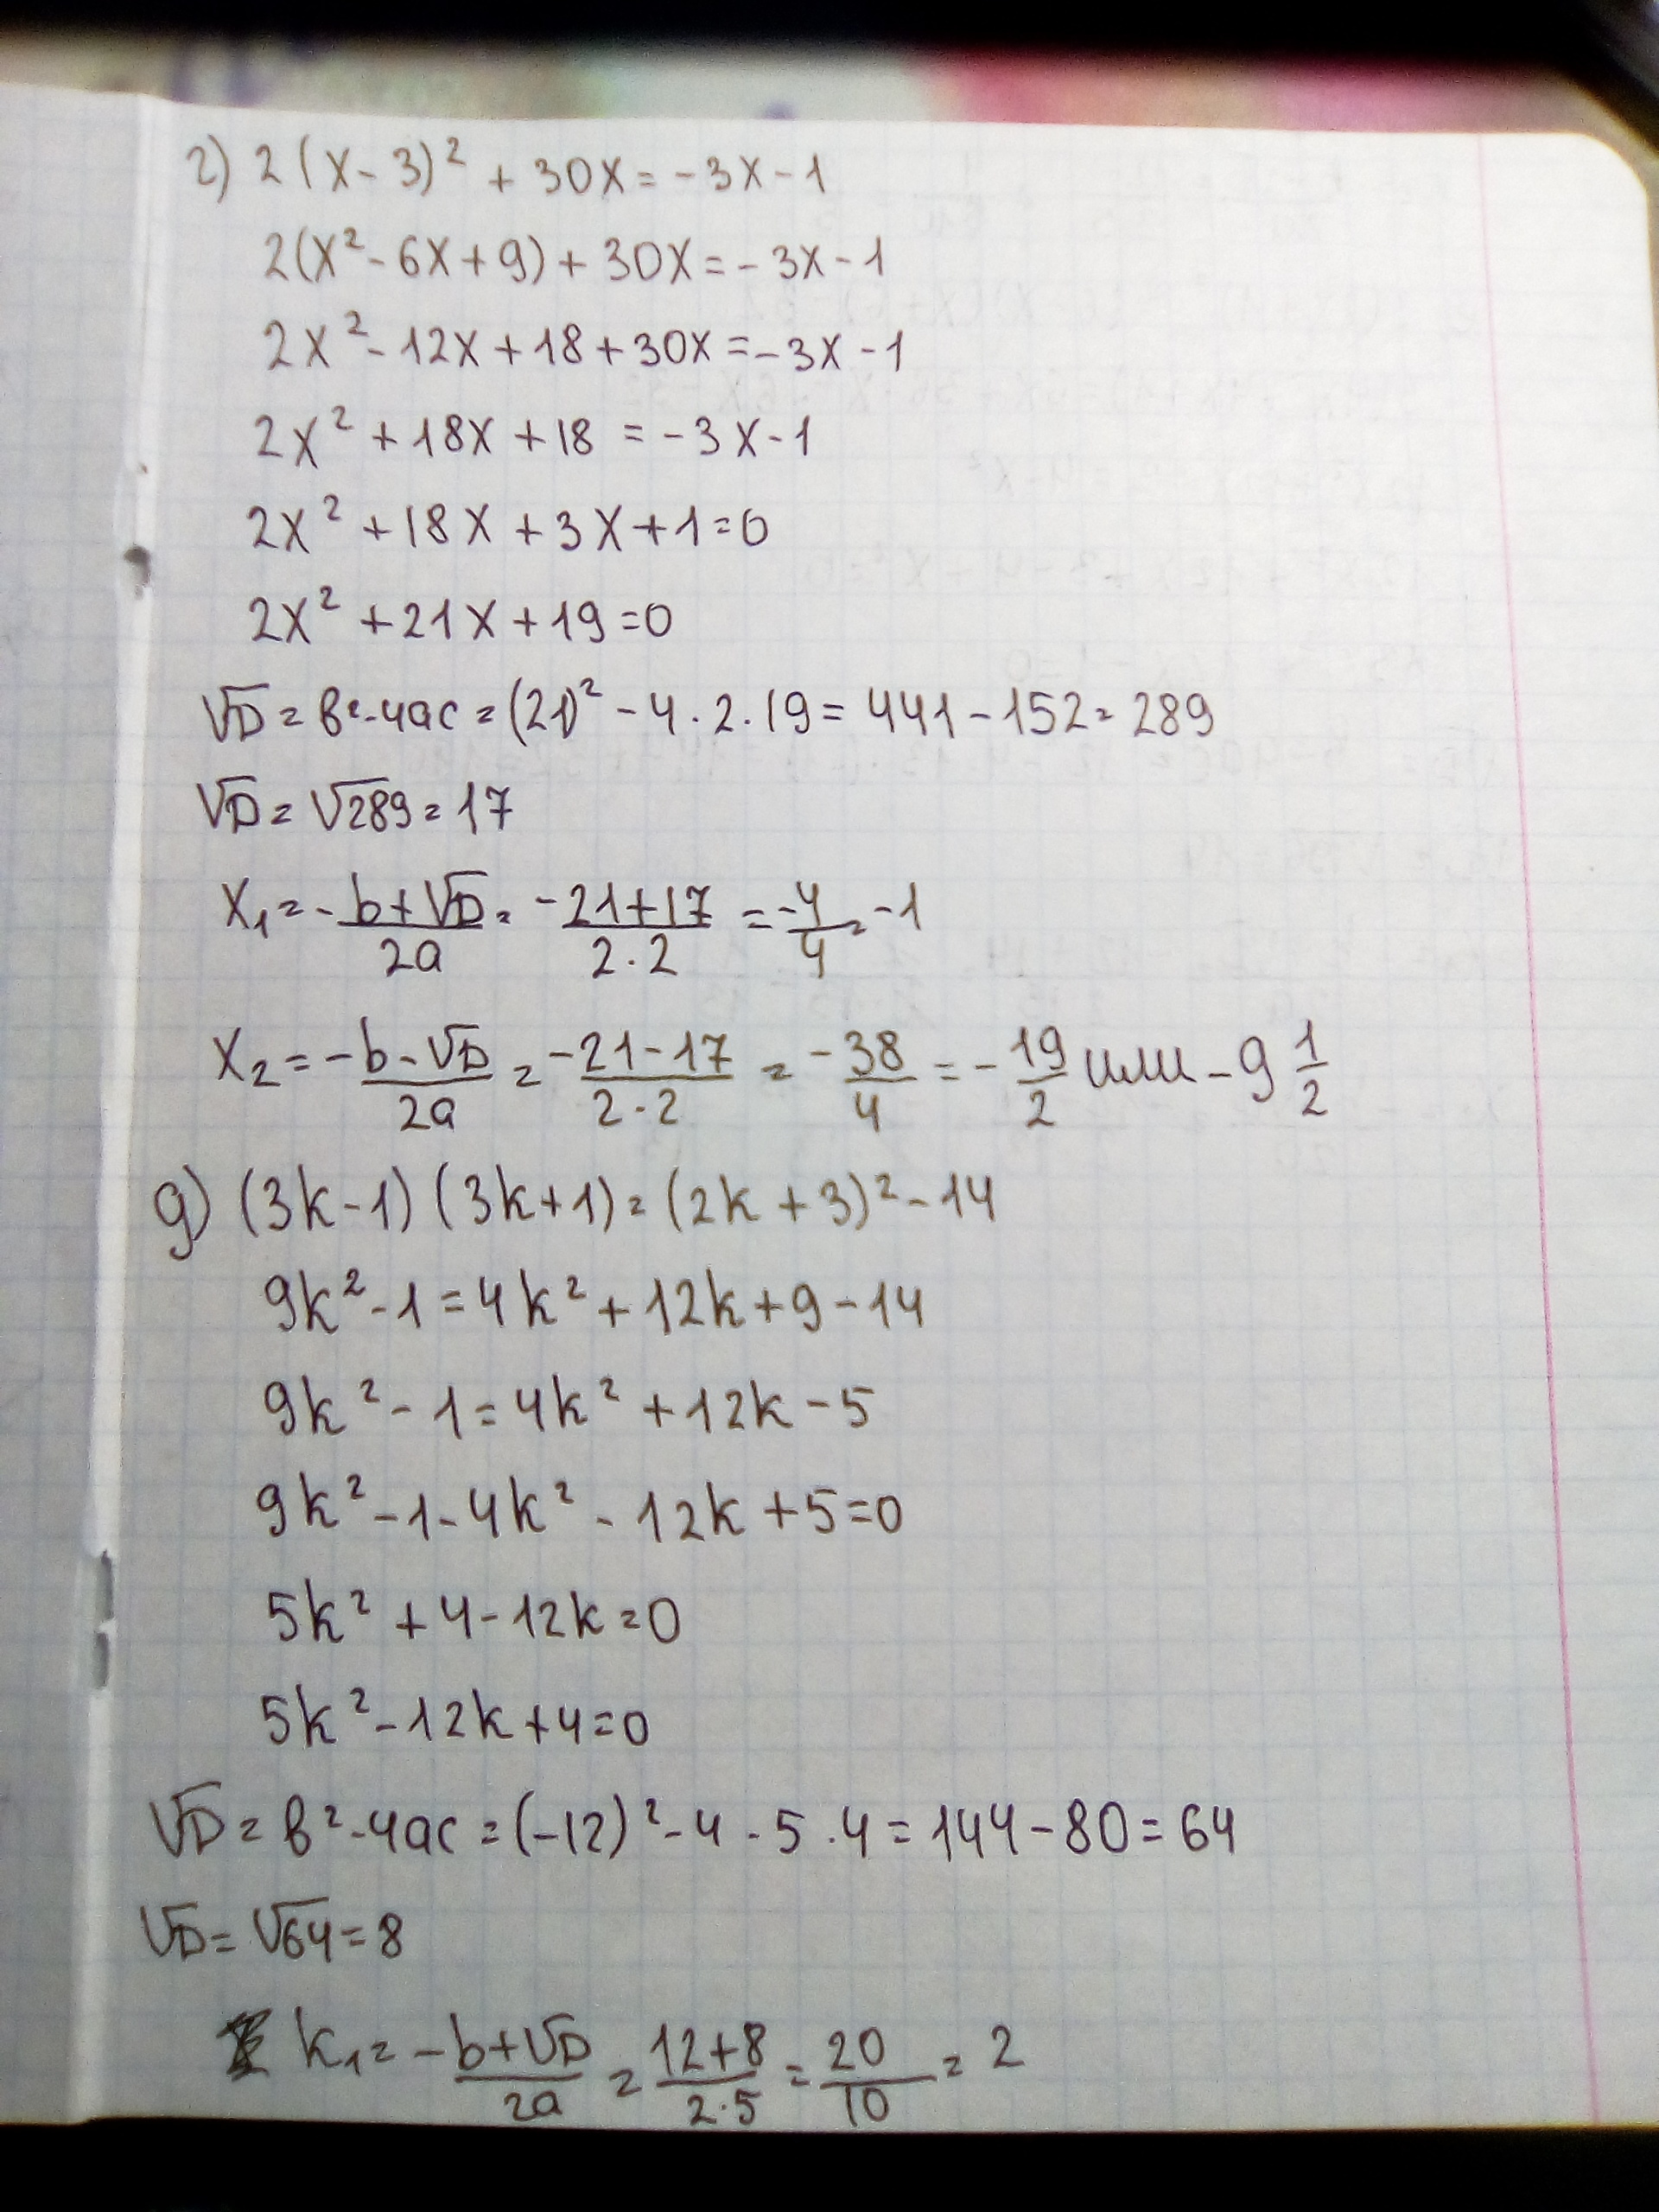 г) 2(x-3)² + 30x = -3x-1
2(x²-6x+9)+30x=-3x-1
2x²-12x+18+30x=-3x-1
2x²+18x+18=-3x-1
2x²+18x+3x+1=0
2x²+21x+19=0
√D=в²-4ac=(21)²-4·2·19=441-152=289
√D=√289=17
x₁=-b+√D/2a=-21+17/2·2=-4/4=-1
x₂=-b-√D/2a=-21-17/2·2=-38/4=-19/2 или -9 1/2
g) (3k-1)(3k+1)=(2k+3)²-14
9k²-1=4k²+12k+9-14
9k²-1=4k²+12k-5
9k²-1-4k²-12k+5=0
5k²+4-12k=0
5k²-12k+4=0
√D=в²-4ac=(-12)²-4·5·4=144-80=64
√D=√64=8
k₁=-b+√D/2a=12+8/2·5=20/10=2